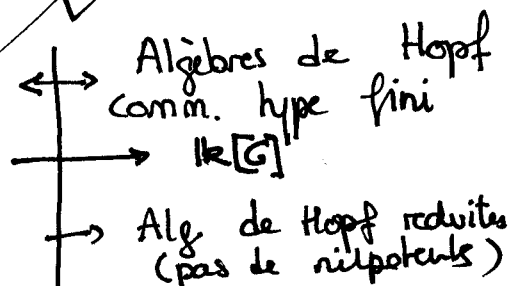 Algèbres de Hopf
comm. type fini
k[G]
Alg de Hopf reduites
(pas de nilpotents)